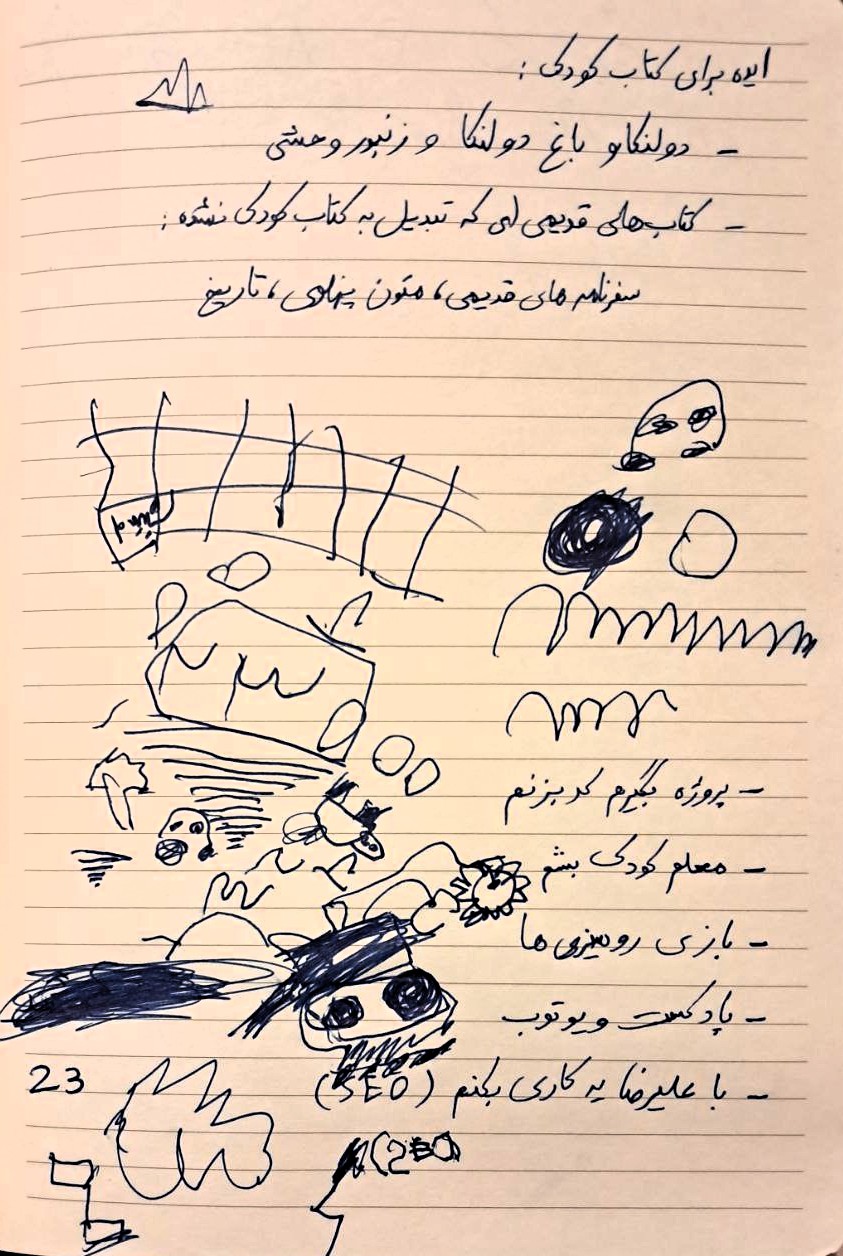 ایده برای کتاب کودک :
- دولنکا و باغ دولنکا و زنبور وحشی
- کتاب‌های قدیمی ای که تبدیل به کتاب کودک نشده :
سفرنامه های قدیمی، متون پهلوی، تاریخ
- پروژه بگیرم کد بزنم
- معلم کودک بشم
- بازی رومیزی ها
- پادکست و یوتوب
- با علیرضا یه کاری بکنم (SEO)
23